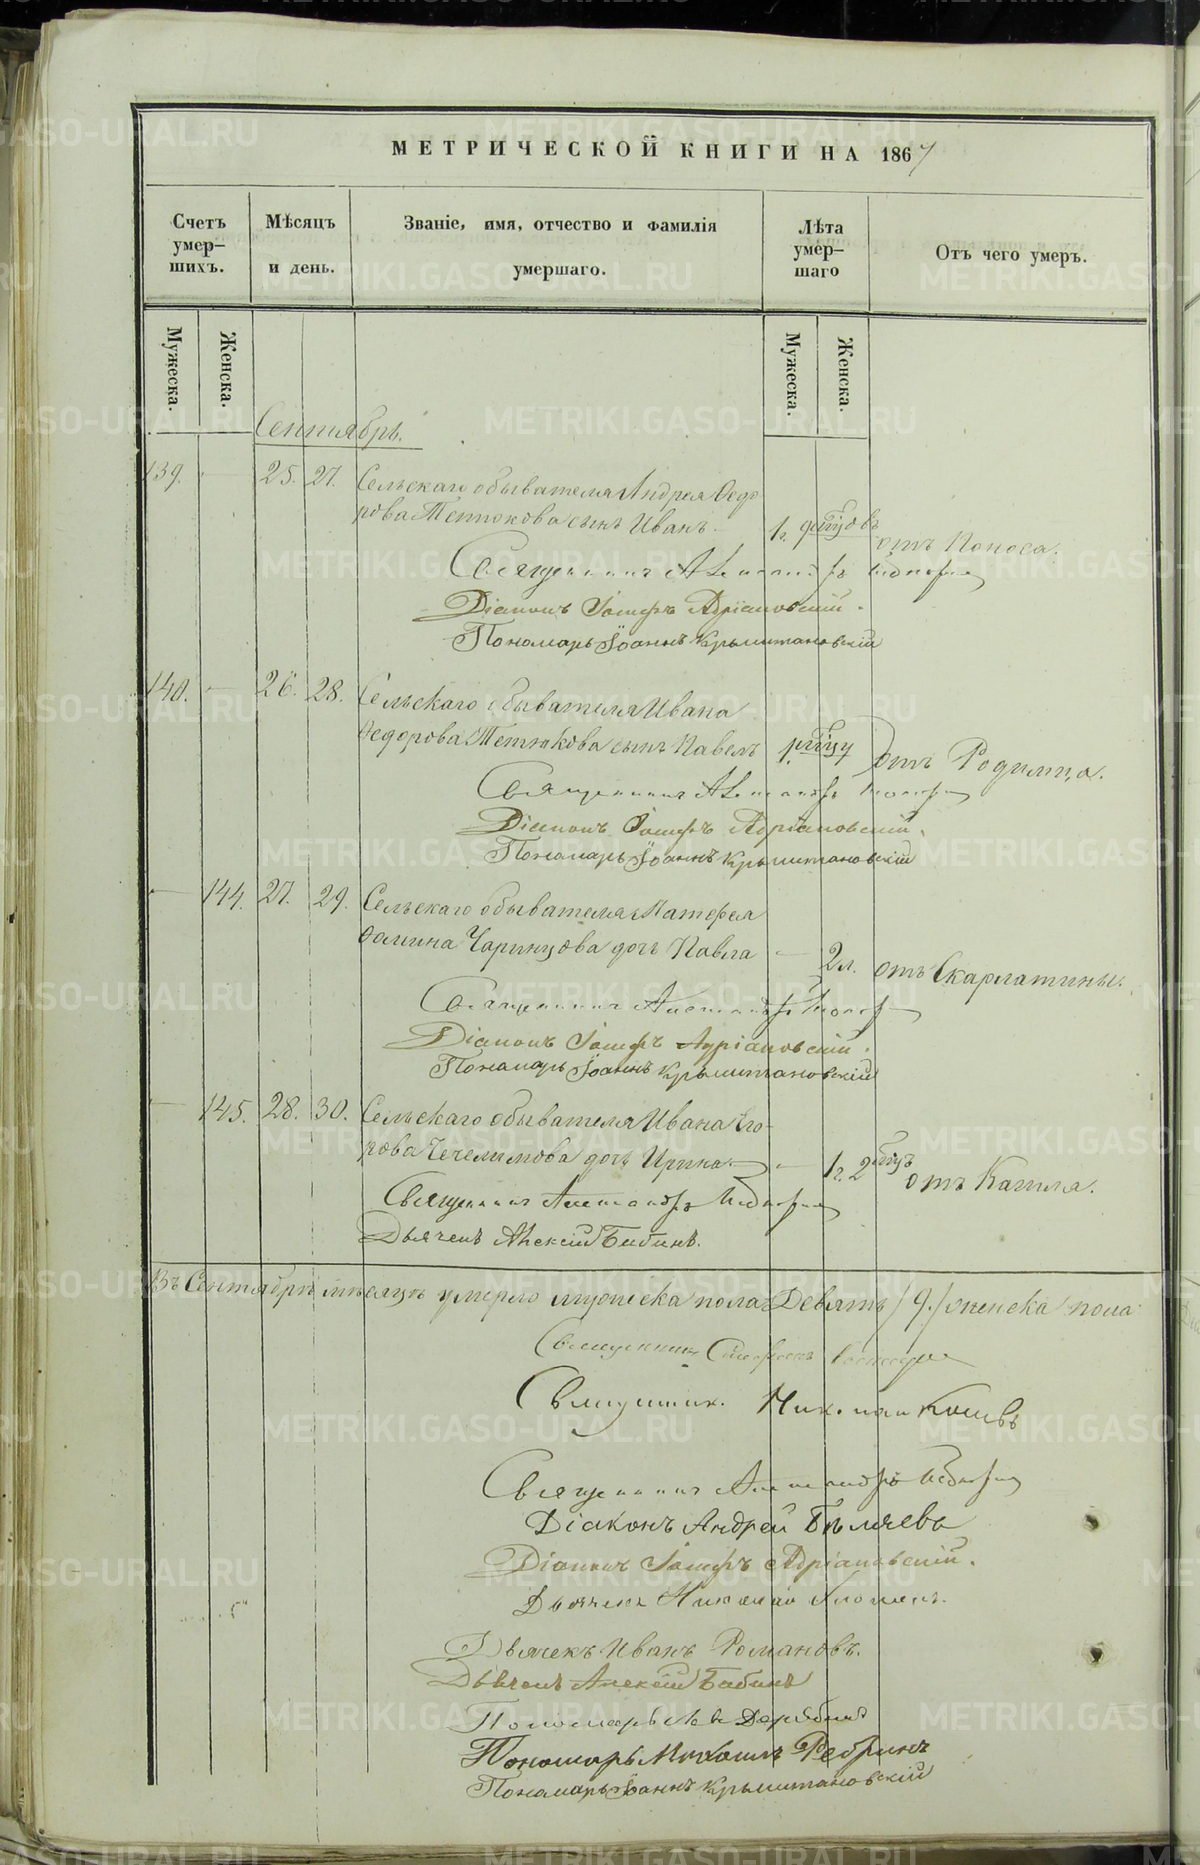 МЕТРИЧЕСКОЙ КНИГИ НА 1867
Счетъ умер–шихъ.
Мѣсяцъ и день.
Званіе, имя, отчество и фамилія умершаго.
Лѣта умер–шаго
Отъ чего умеръ.
Мужеска.
Женска.
Мужеска.
Женска.
Сентябрь.
139. — 25. 27. Сельскаго обывателя Андрея Ѳедо-
рова Тетюкова сынъ Иванъ. 1г. отъ Поноса.
Священникъ Александръ
Діаконъ Іосифъ Адріановскій.
Пономарь Іоаннъ Крыжтановскій
140. — 26. 28. Сельскаго обывателя Ивана
Ѳедорова Тетюкова сынъ Павелъ отъ Родимца.
Священникъ Александръ
Діаконъ Іосифъ Адріановскій.
Пономарь Іоаннъ Крыжтановскій
— 144. 27. 29. Сельскаго обывателя Матѳея
Ѳомина дочь Павла — 2л. отъ Скарлатины.
Священникъ Александръ
Діаконъ Іосифъ Адріановскій.
Пономарь Іоаннъ Крыжтановскій
— 145. 28. 30. Сельскаго обывателя Ивана Его-
рова дочь Ирина. — 1г. 2 отъ Кашля.
Священникъ Александръ
Дьячекъ Алексій Бабинъ.
Въ Сентябрѣ мѣсяцѣ умерло мужеска пола Девять /9./ женска пола
Священникъ
Священникъ Николай
Священникъ Александръ
Діаконъ Андрей Бѣляевъ
Діаконъ Іосифъ Адріановскій.
Дьячекъ Николай
Дьячекъ Иванъ Романовъ.
Дьячекъ Алексій Бабинъ
Пономарь
Пономарь Михаилъ Ребринъ
Пономарь Іоаннъ Крыжтановскій
METRIKI.GASO-URAL.RU